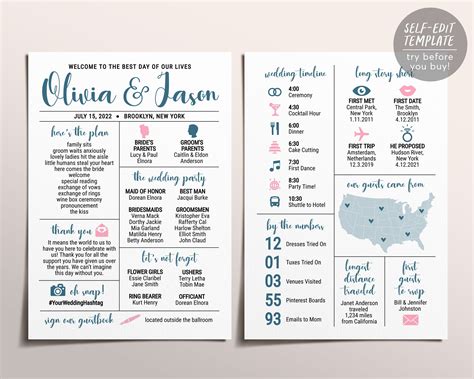 SELF-EDIT
TEMPLATE
try before
you buy!
WELCOME TO THE BEST DAY OF OUR LIVES
Olivia & Jason
JULY 15, 2022 • BROOKLYN, NEW YORK
here's the plan
family sits
groom waits anxiously
lovely ladies hit the aisle
little humans steal your heart
here comes the bride
welcome
special reading
exchange of vows
exchange of rings
wine box ceremony
pronouncement
the kiss
thank you
It means the world to us to
have you here to celebrate
with us! Thank you for all the
support you have given us
over the years. We can't
imagine this day without you.
oh snap!
#YourWeddingHashtag
BRIDE'S
PARENTS
Lucy & Paul
Elnora
GROOM'S
PARENTS
Caitlin & Eldon
Anderson
the wedding party
MAID OF HONOR
Dorean Elnora
BEST MAN
Jacqui Burke
BRIDESMAIDS
Verna Mack
Dorthy Jackie
Mia Garland
Matilda Banks
Henrietty Clark
GROOMSMEN
Kristopher Eva
Rafferty Cal
Harlow Shelton
Elliot Smith
Chad Smith
let's not forget
FLOWER GIRLS
Essie Claribel
Jane Smith
USHERS
Terry Letha
Tobin Mae
RING BEARER
Kurt Henry
OFFICIANT
Dorean Elnora
sign our guestbook
located outside the ballroom
wedding timeline
4:00
Ceremony
4:30
Cocktail Hour
6:00
Dinner
7:30
Cake Cutting
7:50
Dancing
8:30
Party Time!
9:30
Cheers!
by the numbers
12 Dresses Tried On
03 Tuxes Tried On
01 Venues Visited
55 Pinterest Boards
93 Emails to Mom
long story short
FIRST MET
Central Park,
New York
1.11.2011
FIRST DATE
The Smith,
New York
4.12.2011
FIRST TRIP
Amsterdam,
Netherlands
12.3.2019
HE PROPOSED
Hudson River,
New York
10.11.2021
our guests came from
longest
distance
traveled
Janet Anderson
traveled
1,234 miles
from California
first
guests
to rsvp
Bill & Jennifer
Johnson